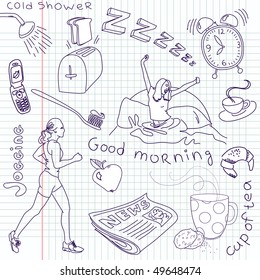 COLd SHOWER
ZZZZZZ
Good morning
Jogging
NEWS
cup of tea
www.shutterstock.com · 49648474